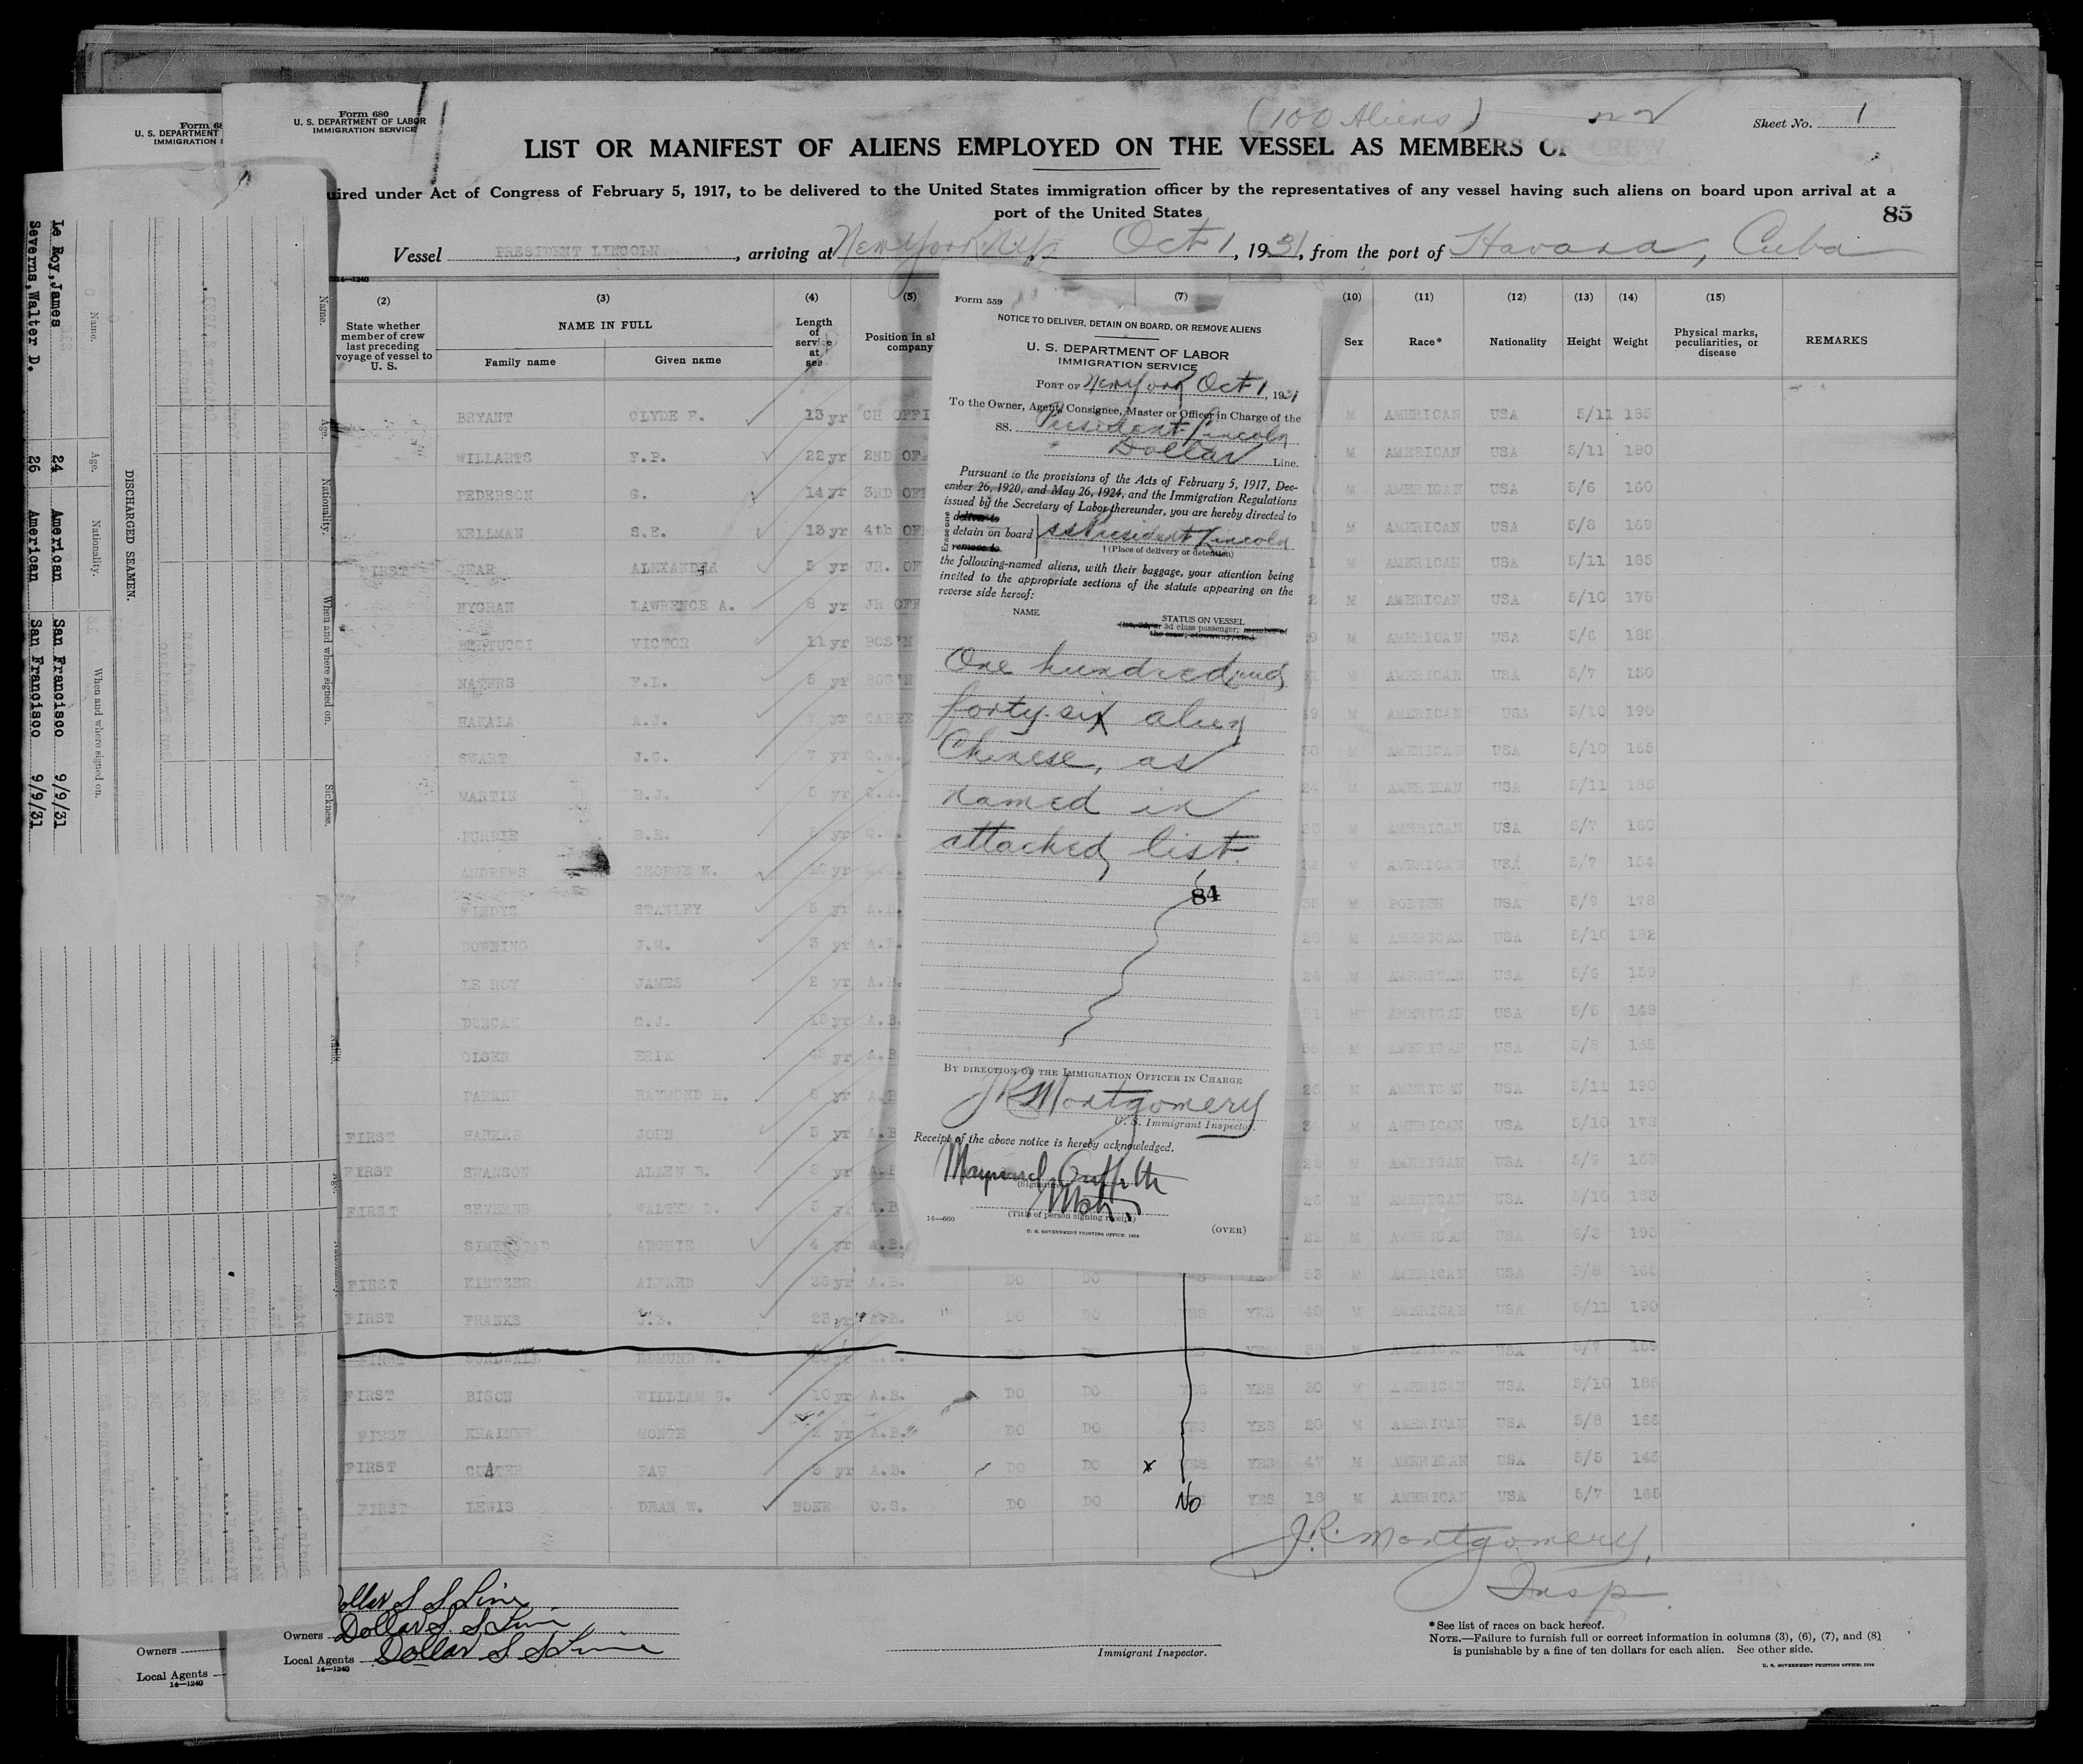 Form 680
U. S. DEPARTMENT OF LABOR
IMMIGRATION SERVICE
(100 Aliens)
Sheet No. 1
LIST OR MANIFEST OF ALIENS EMPLOYED ON THE VESSEL AS MEMBERS OF CREW
uired under Act of Congress of February 5, 1917, to be delivered to the United States immigration officer by the representatives of any vessel having such aliens on board upon arrival at a
port of the United States
85
Vessel PRESIDENT LINCOLN, arriving at New York, N.Y., Oct 1, 1931, from the port of Havana, Cuba
14—1240
(2) (3) (4) (5) (7) (10) (11) (12) (13) (14) (15)
State whether member of crew last preceding voyage of vessel to U. S.
NAME IN FULL
Family name Given name
Length of service at sea
Position in sh company
Sex Race* Nationality Height Weight
Physical marks, peculiarities, or disease
REMARKS
BRYANT CLYDE F. 13 yr CH OFFI M AMERICAN USA 5/11 185
WILLARTS F.P. 22 yr 2ND OF M AMERICAN USA 5/11 180
PEDERSON G. 14 yr 3RD OFF M AMERICAN USA 5/6 160
WELLMAN S.E. 13 yr 4th OF M AMERICAN USA 5/8 169
FIRST GEAR ALEXANDER 5 yr JR. OF M AMERICAN USA 5/11 185
HYGRAN LAWRENCE A. 8 yr JR OFF M AMERICAN USA 5/10 175
VICTOR 11 yr BOS'N M AMERICAN USA 5/6 185
F.I. 5 yr BOS'N M AMERICAN USA 5/7 150
HAKALA A.J. yr CARPE M AMERICAN USA 5/10 190
SWART J.C. 7 yr Q.M. M AMERICAN USA 5/10 165
MARTIN R.J. 5 yr Q.M. M AMERICAN USA 5/11 185
PURDIE R.E. yr Q.M. M AMERICAN USA 5/7 160
ANDREWS GEORGE K. 10 yr Q.M. M AMERICAN USA 5/7 154
STANLEY 5 yr A.B. M POLISH USA 5/9 178
DOWNING J.M. 3 yr A.B. M AMERICAN USA 5/10 182
LE ROY JAMES 2 yr A.B. 24 M AMERICAN USA 5/6 159
DUNCAN C.J. 15 yr A.B. M AMERICAN USA 5/5 148
OLSEN ERIK yr A.B M AMERICAN USA 5/8 165
PARKER RAYMOND H. 8 yr A.B M AMERICAN USA 5/11 190
FIRST HARKER JOHN 5 yr A.B M AMERICAN USA 5/10 173
FIRST SWANSON ALLEN B. yr A.B M AMERICAN USA 5/9 158
FIRST SEVERNS WALTER D. 5 yr A.B 26 M AMERICAN USA 5/10 183
ARCHIE 4 yr A.B. M AMERICAN USA 6/3 195
FIRST KINTZER ALFRED yr A.B. DO DO YES YES 53 M AMERICAN USA 5/8 160
FIRST FRANKS J.B. 23 yr A.B. DO DO YES YES 40 M AMERICAN USA 5/11 190
FIRST EDMUND A.B. DO DO YES M USA 5/7
FIRST BISON WILLIAM G. 10 yr A.B. DO DO YES YES 30 M AMERICAN USA 5/10 186
FIRST KRAINER MONTE yr A.B. DO DO YES YES 20 M AMERICAN USA 5/8 166
FIRST CUTTER PAU 3 yr A.B. DO DO x YES YES 47 M AMERICAN USA 5/5 145
FIRST LEWIS DEAN W. NONE O.S. DO DO No YES 18 M AMERICAN USA 5/7 165
J.R. Montgomery,
Insp.
Dollar S S Line
Owners Dollar S. S Line
Local Agents Dollar S S Line
14—1240
Immigrant Inspector.
*See list of races on back hereof.
NOTE.—Failure to furnish full or correct information in columns (3), (6), (7), and (8)
is punishable by a fine of ten dollars for each alien. See other side.
U. S. GOVERNMENT PRINTING OFFICE: 1929
Form 559
NOTICE TO DELIVER, DETAIN ON BOARD, OR REMOVE ALIENS
U. S. DEPARTMENT OF LABOR
IMMIGRATION SERVICE
PORT OF New York Oct 1, 1931
To the Owner, Agent, Consignee, Master or Officer in Charge of the
SS. President Lincoln
Dollar Line.
Pursuant to the provisions of the Acts of February 5, 1917, Dec-
ember 26, 1920, and May 26, 1924, and the Immigration Regulations
issued by the Secretary of Labor thereunder, you are hereby directed to
Erase one
deliver to
detain on board
remove to
ss President Lincoln
† (Place of delivery or detention)
the following-named aliens, with their baggage, your attention being
invited to the appropriate sections of the statute appearing on the
reverse side hereof:
NAME STATUS ON VESSEL
(1st, 2d, or 3d class passenger; member of
the crew; stowaway, etc.)
One hundred and
forty-six alien
Chinese, as
named in
attached list.
84
BY DIRECTION OF THE IMMIGRATION OFFICER IN CHARGE
J R Montgomery
U. S. Immigrant Inspector.
Receipt of the above notice is hereby acknowledged.
Maynard Griffith
(Signature)
Mstr.
(Title of person signing receipt)
14—660
U. S. GOVERNMENT PRINTING OFFICE: 1929
(OVER)
Form 68
U. S. DEPARTMENT
IMMIGRATION S
DISCHARGED SEAMEN.
Name. Age. Nationality. When and where signed on.
Le Roy, James 24 American San Francisco 9/9/31
Severns, Walter D. 26 American San Francisco 9/9/31
Name. Age. Nationality. When and where signed on. Sickness.
Owners
Local Agents
14—1240